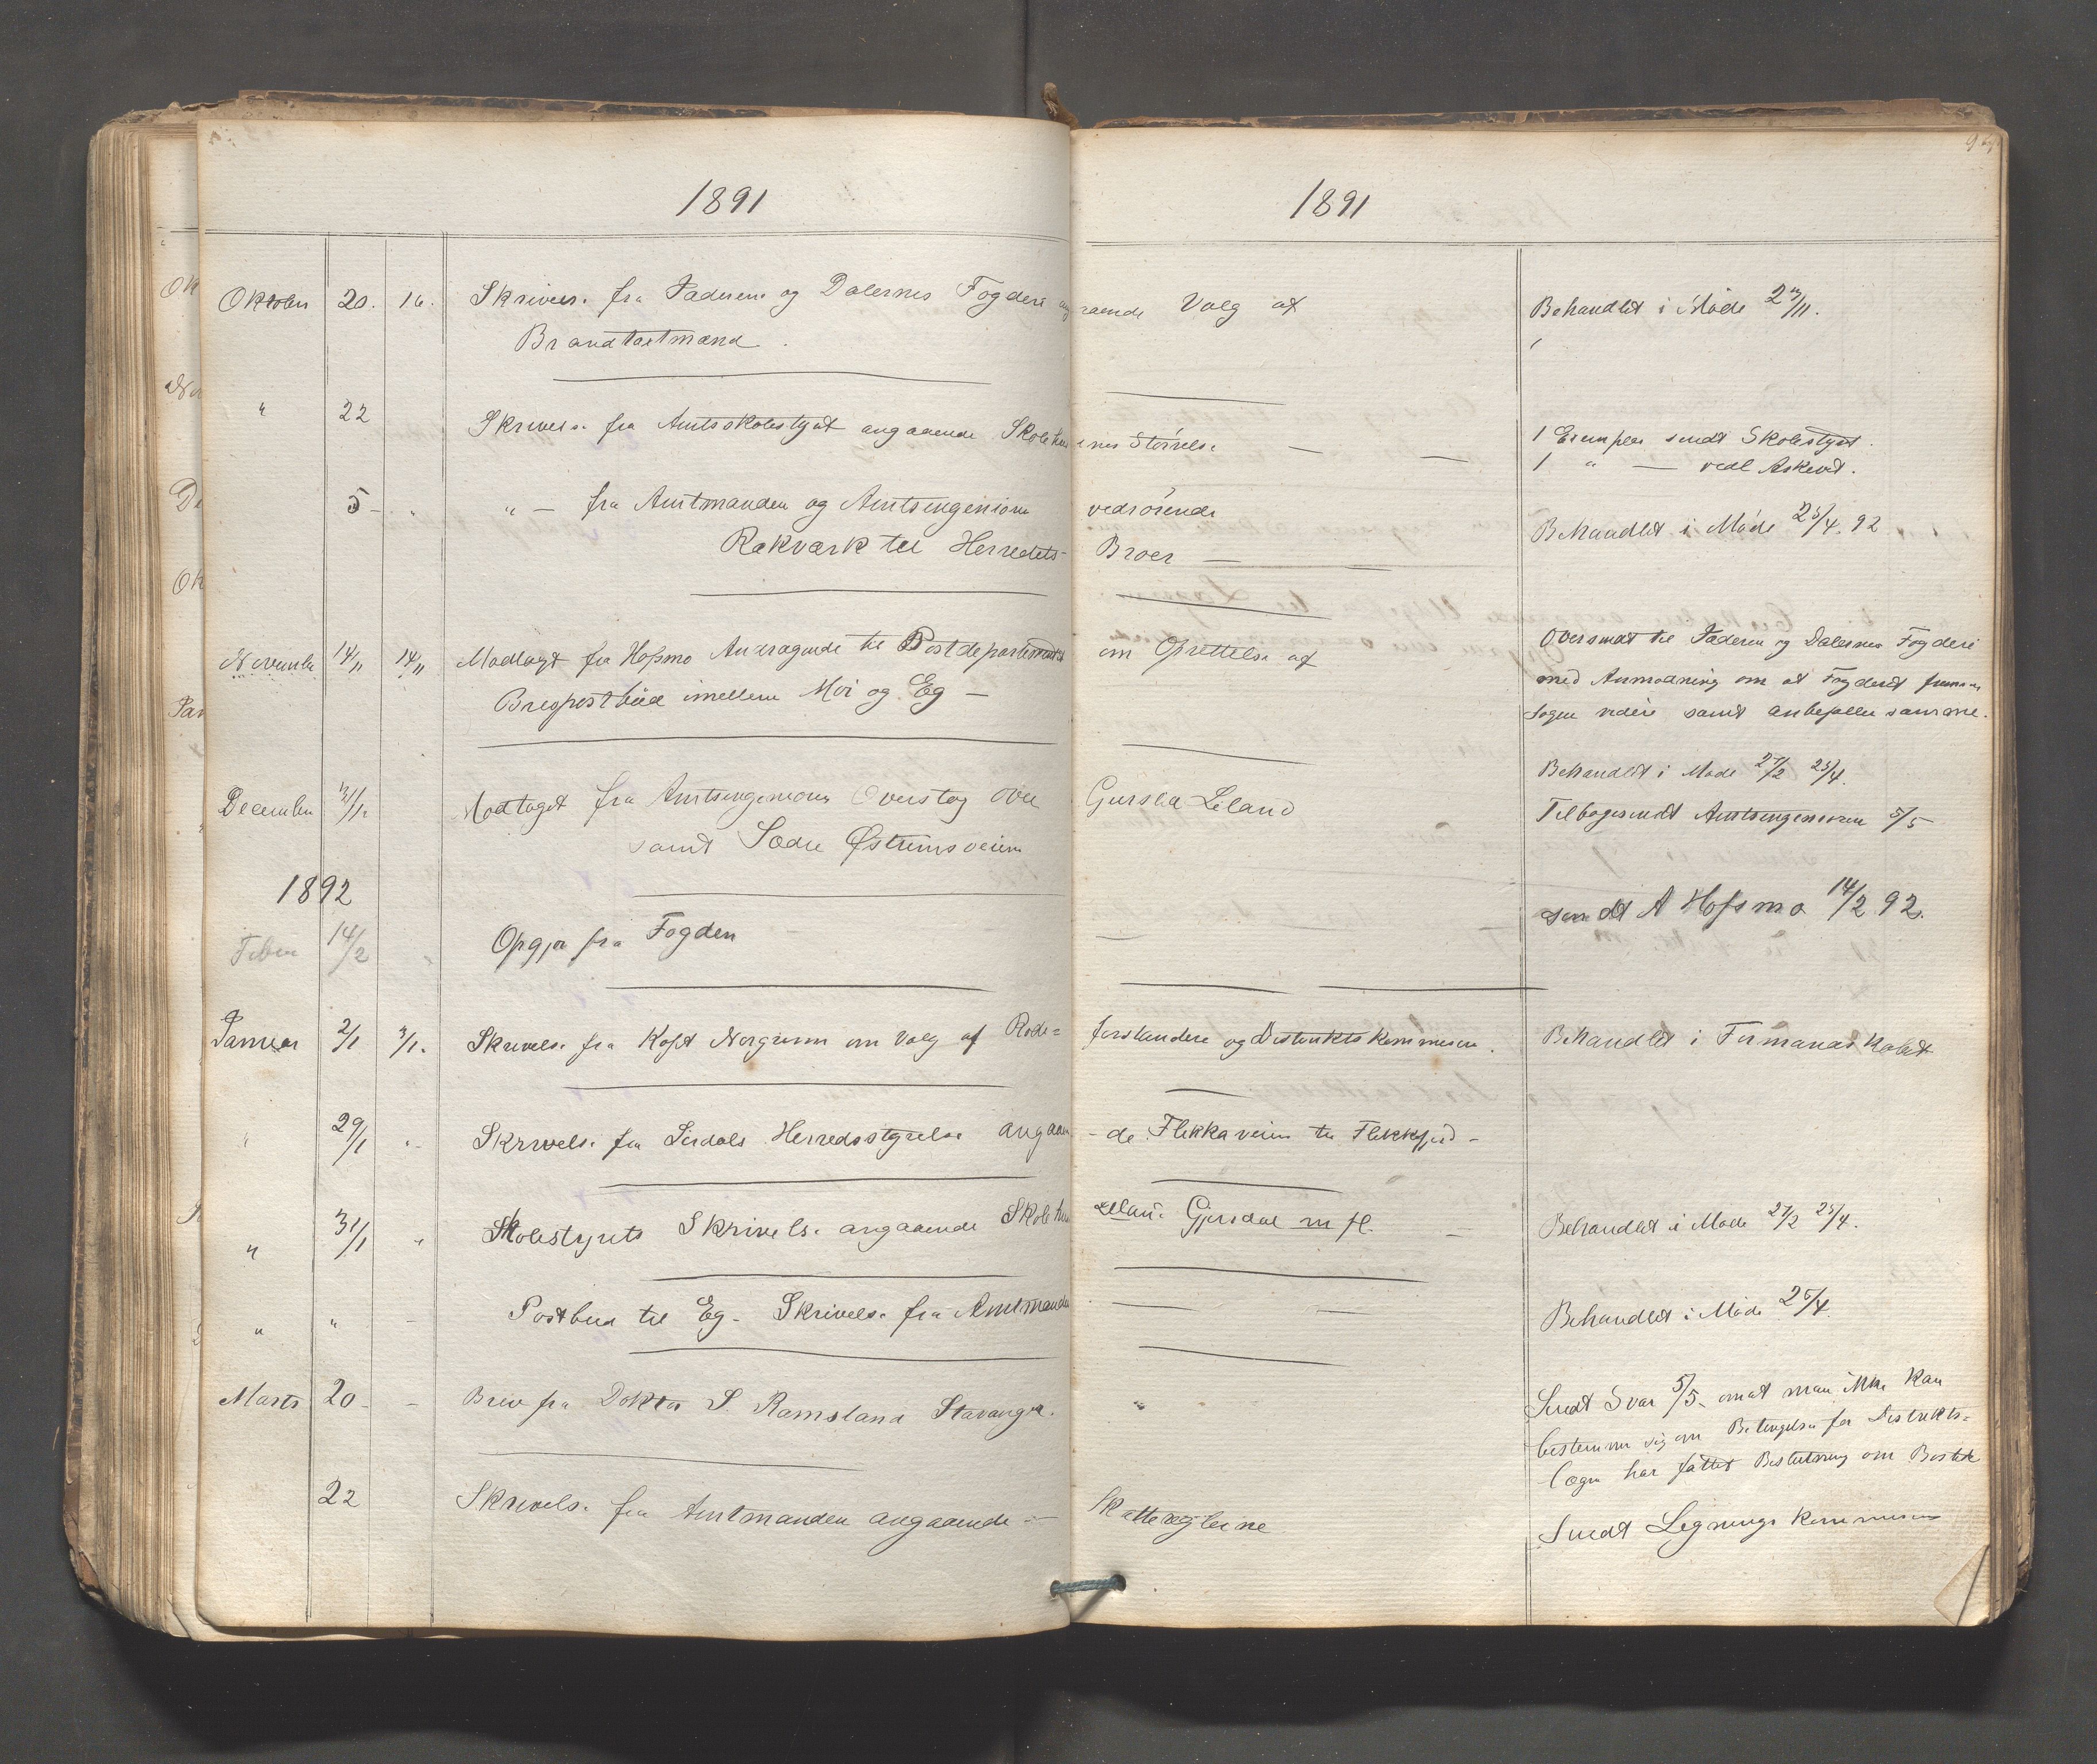 1891
1891
Oktober 20. 16. Skrivelse fra Jæderens og Dalernes Fogderi angaaende Valg af
Brandtaxtmænd.
Behandlet i Møde 2 /11.
" 22 Skrivelse fra Amtsskolestyret angaaende Skolehusenes Størrelse — —
1 Exemplar sendt Skolestyret.
1 " — vedl Askevd.
5 - " " — fra Amtmanden og Amtsingeniøren vedrørende
Rækværk til Herredets- Broer —
Behandlet i Møde 25/4. 92
November 14/11 14/11 Modtagt fra Hofsmo Andragende til Postdepartementet om Oprettelse af
Brevpostbud imellem Moi og Eg —
Oversendt til Jæderen og Dalernes Fogderi
med Anmodning om at Fogderiet fremmer
Sagen videre samt anbefaller samme.
Behandlet i Møde 27/2 25/4.
December 3/12 Modtaget fra Amtsingeniøren Overslag over Gursla Leland
samt Sødre Østrumsveien
Tilbagesendt Amtsingeniøren 5/5
1892
Febru 14/2 " Opgjør fra Fogden —
sendt A Hofsmo 14/2 92.
Januar 2/1 3/1. Skrivelse fra Kapt Norgrenn om Valg af Rode=forstandere og Distriktskommisær.
Behandlet i Formandskabet
" 29/1 " - Skrivelse fra Sirdals Herredsstyrelse angaaen-de Flikkaveien til Flekkefjord -
" 31/1 " Skolestyrets Skrivelse angaaende Skolehus Gjersdal m fl. —
Behandlet i Møde 27/2 25/4.
" " - Postbud til Eg - Skrivelse fra Amtmanden — —
Behandlet i Møde 25/4.
Marts 20 - - Brev fra Doktor S. Ramsland Stavanger. "
Sendt Svar 5/5. om at man ikke kan
bestemme sig om Betingelse før Distrikts=
lægen har fattet Beslutning om Bosted
22 Skrivelse fra Amtmanden angaaende — Skattereglerne
Sendt Ligningskommisionen